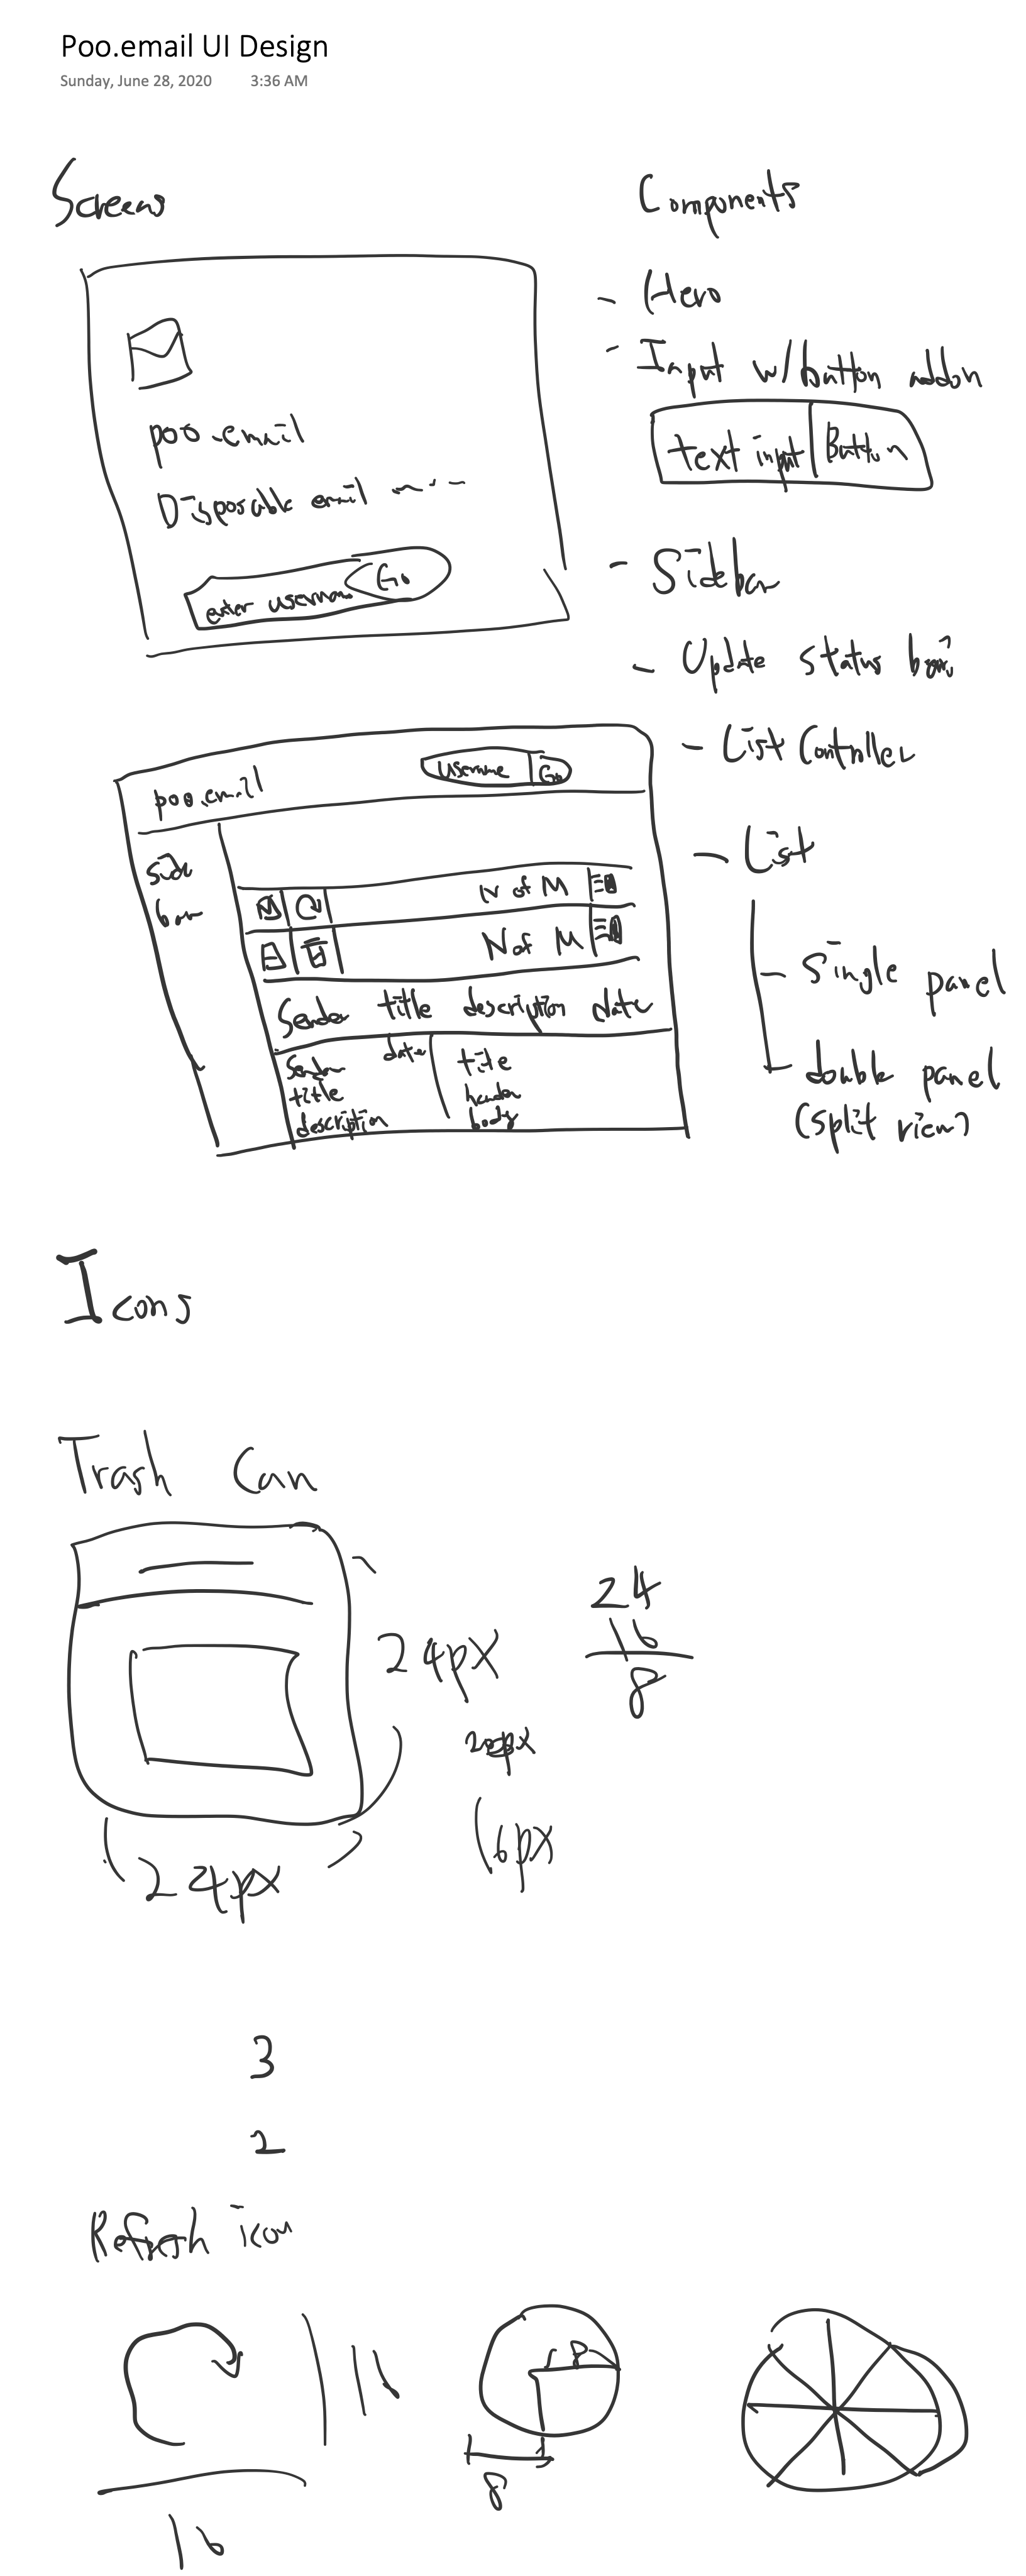 Poo.email UI Design
Sunday, June 28, 2020 3:36 AM
Screens
poo.email
Disposable email
enter username Go
poo.email
username Go
side
bar
N of M
N of M
Sender title description date
Sender date
title
description
title
header
body
Components
- Hero
- Input w/button addon
text input Button
- Sidebar
- Update status
- List Controller
- List
- Single panel
- double panel
(split view)
Icons
Trash Can
24px
24px
16px
24
16
8
3
2
Refresh icon
16
16
8
8